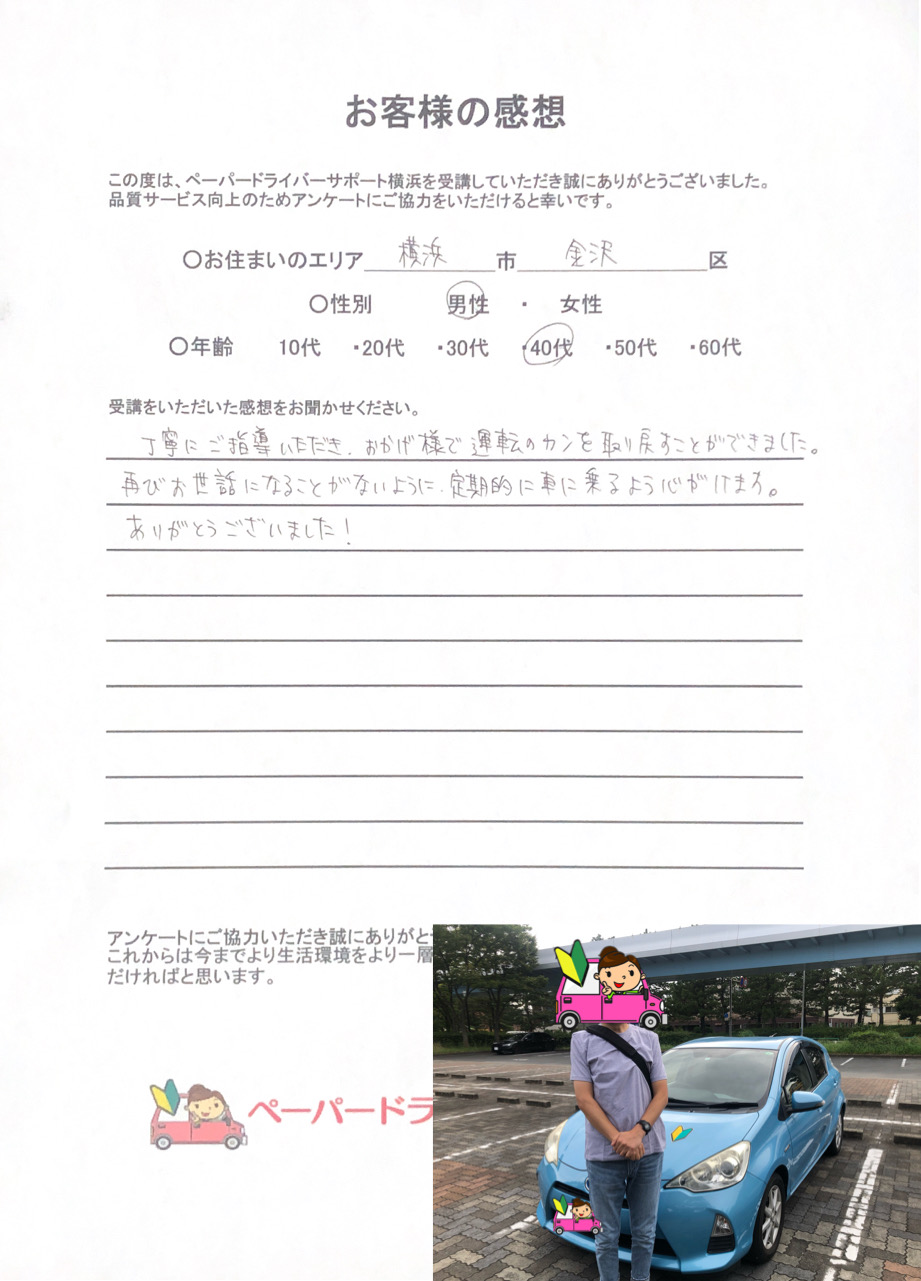 お客様の感想
この度は、ペーパードライバーサポート横浜を受講していただき誠にありがとうございました。
品質サービス向上のためアンケートにご協力をいただけると幸いです。
〇お住まいのエリア 横浜 市 金沢 区
〇性別 男性 ・ 女性
〇年齢 10代 ・20代 ・30代 ・40代 ・50代 ・60代
受講をいただいた感想をお聞かせください。
丁寧にご指導いただき、おかげ様で運転のカンを取り戻すことができました。
再びお世話になることがないように、定期的に車に乗るよう心がけます。
ありがとうございました！
アンケートにご協力いただき誠にありがと
これからは今までより生活環境をより一層
だければと思います。
ペーパードラ